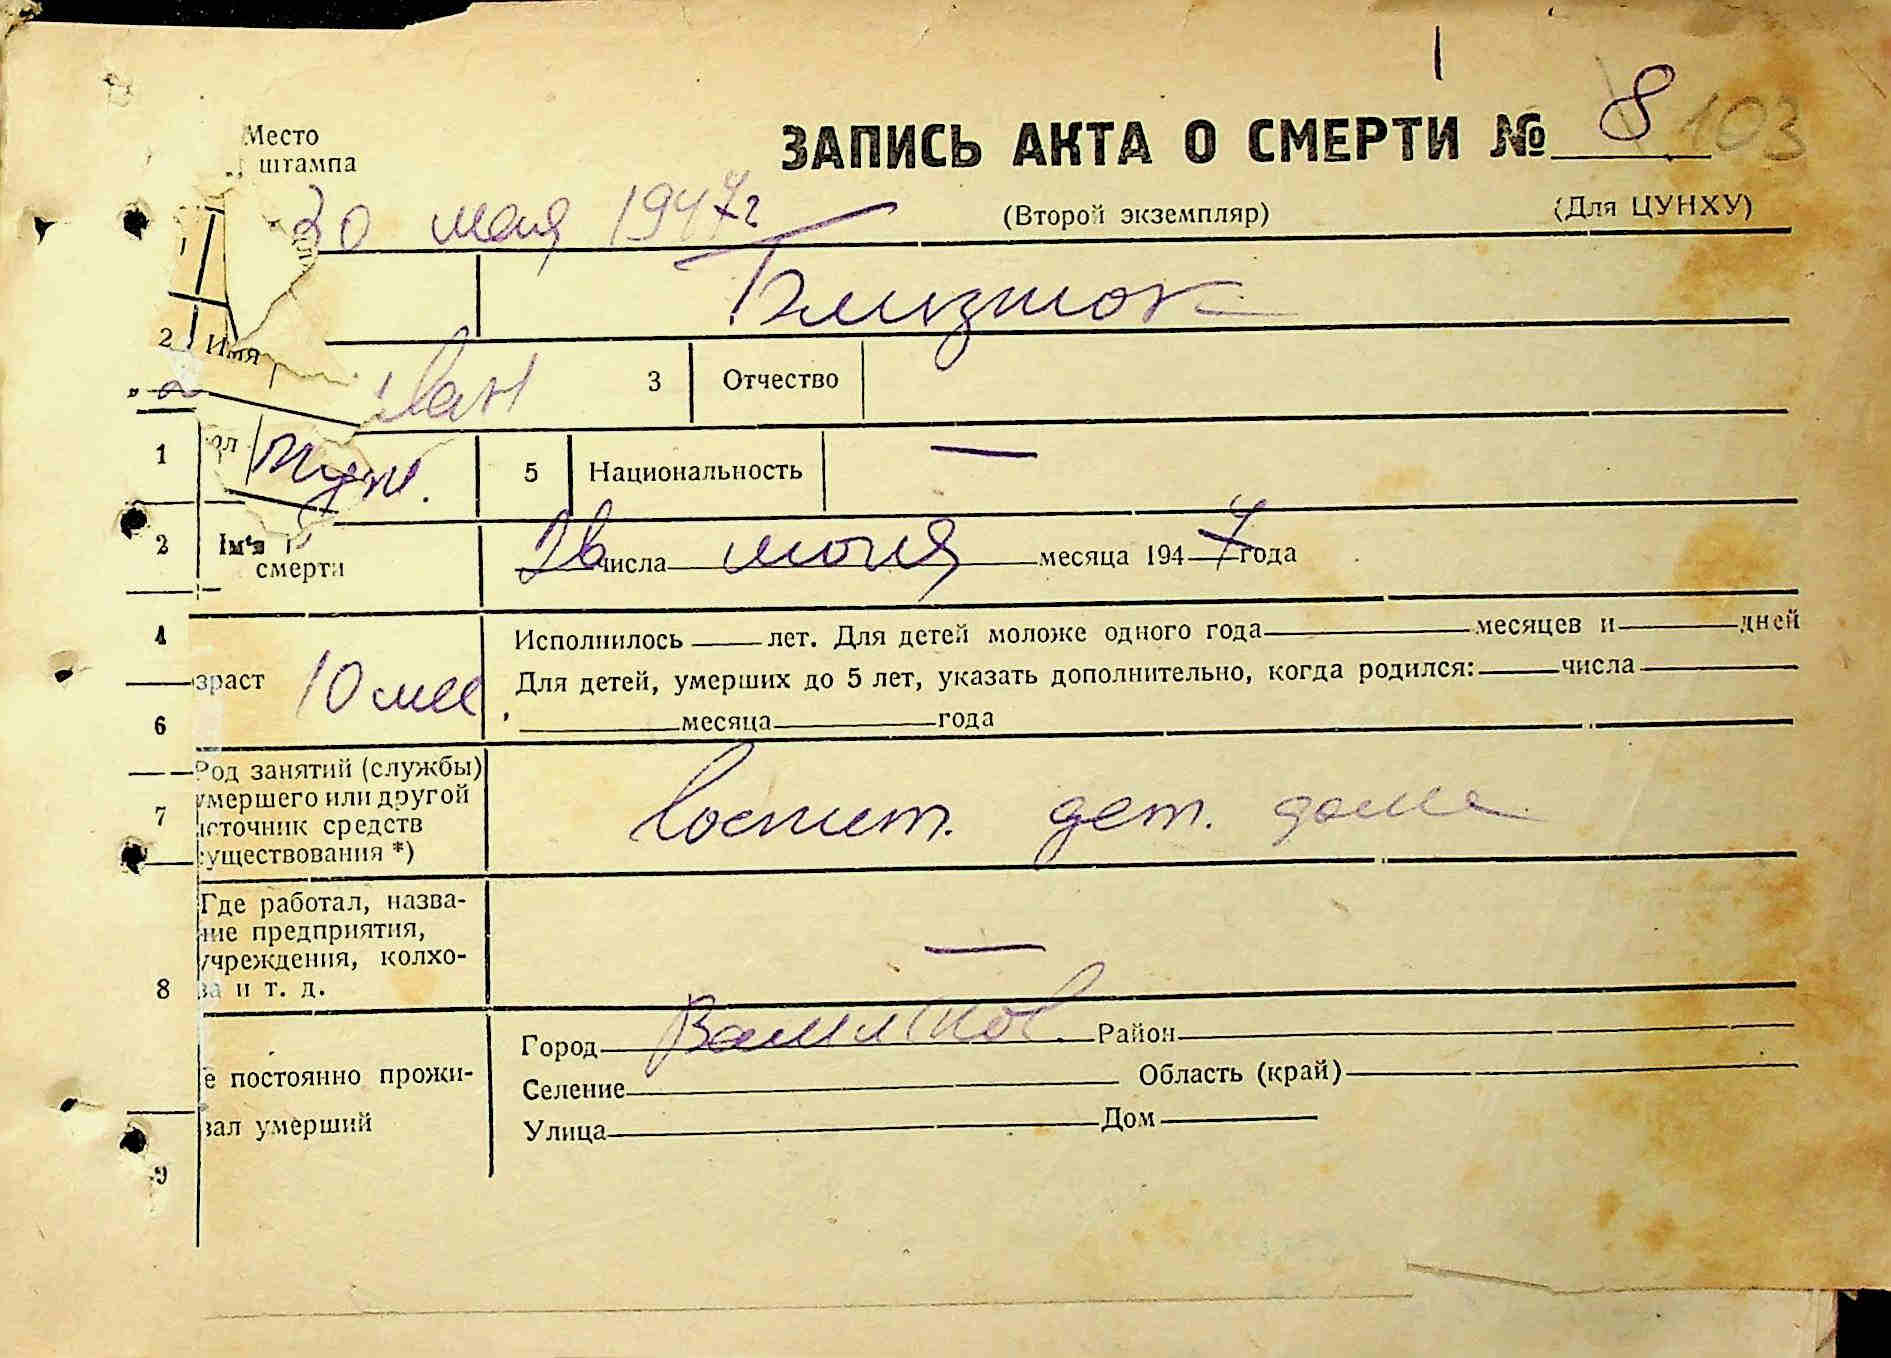 Место
штампа
ЗАПИСЬ АКТА О СМЕРТИ № 8 103
(Второй экземпляр) (Для ЦУНХУ)
30 мая 1947г
Близнюк
2 Имя Иван 3 Отчество
1 ол муж. 5 Национальность —
2 Ім'я
смерти
числа месяца 1947 года
4 Исполнилось лет. Для детей моложе одного года месяцев и дней
зраст 10 мес Для детей, умерших до 5 лет, указать дополнительно, когда родился: числа
6 месяца года
Род занятий (службы)
умершего или другой
7 источник средств
существования *)
воспит. дет. дома
Где работал, назва-
ние предприятия,
учреждения, колхо-
8 за и т. д.
—
Город Васильков Район
е постоянно прожи- Селение Область (край)
вал умерший Улица Дом
9